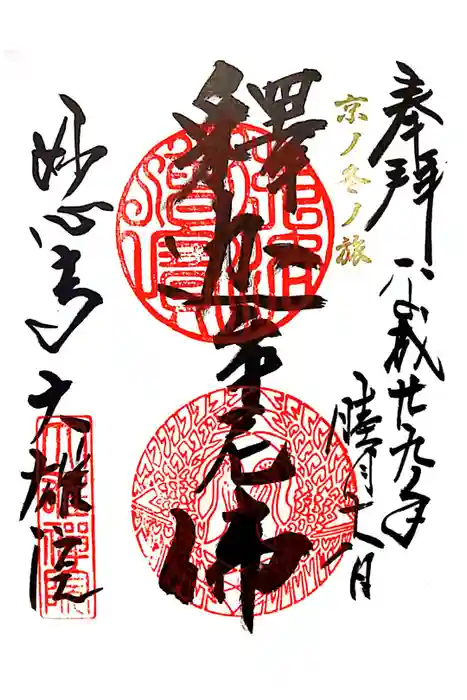 奉拝 平成廿九年
睦月
京ノ冬ノ旅
釋迦牟尼佛
妙心寺 大雄院